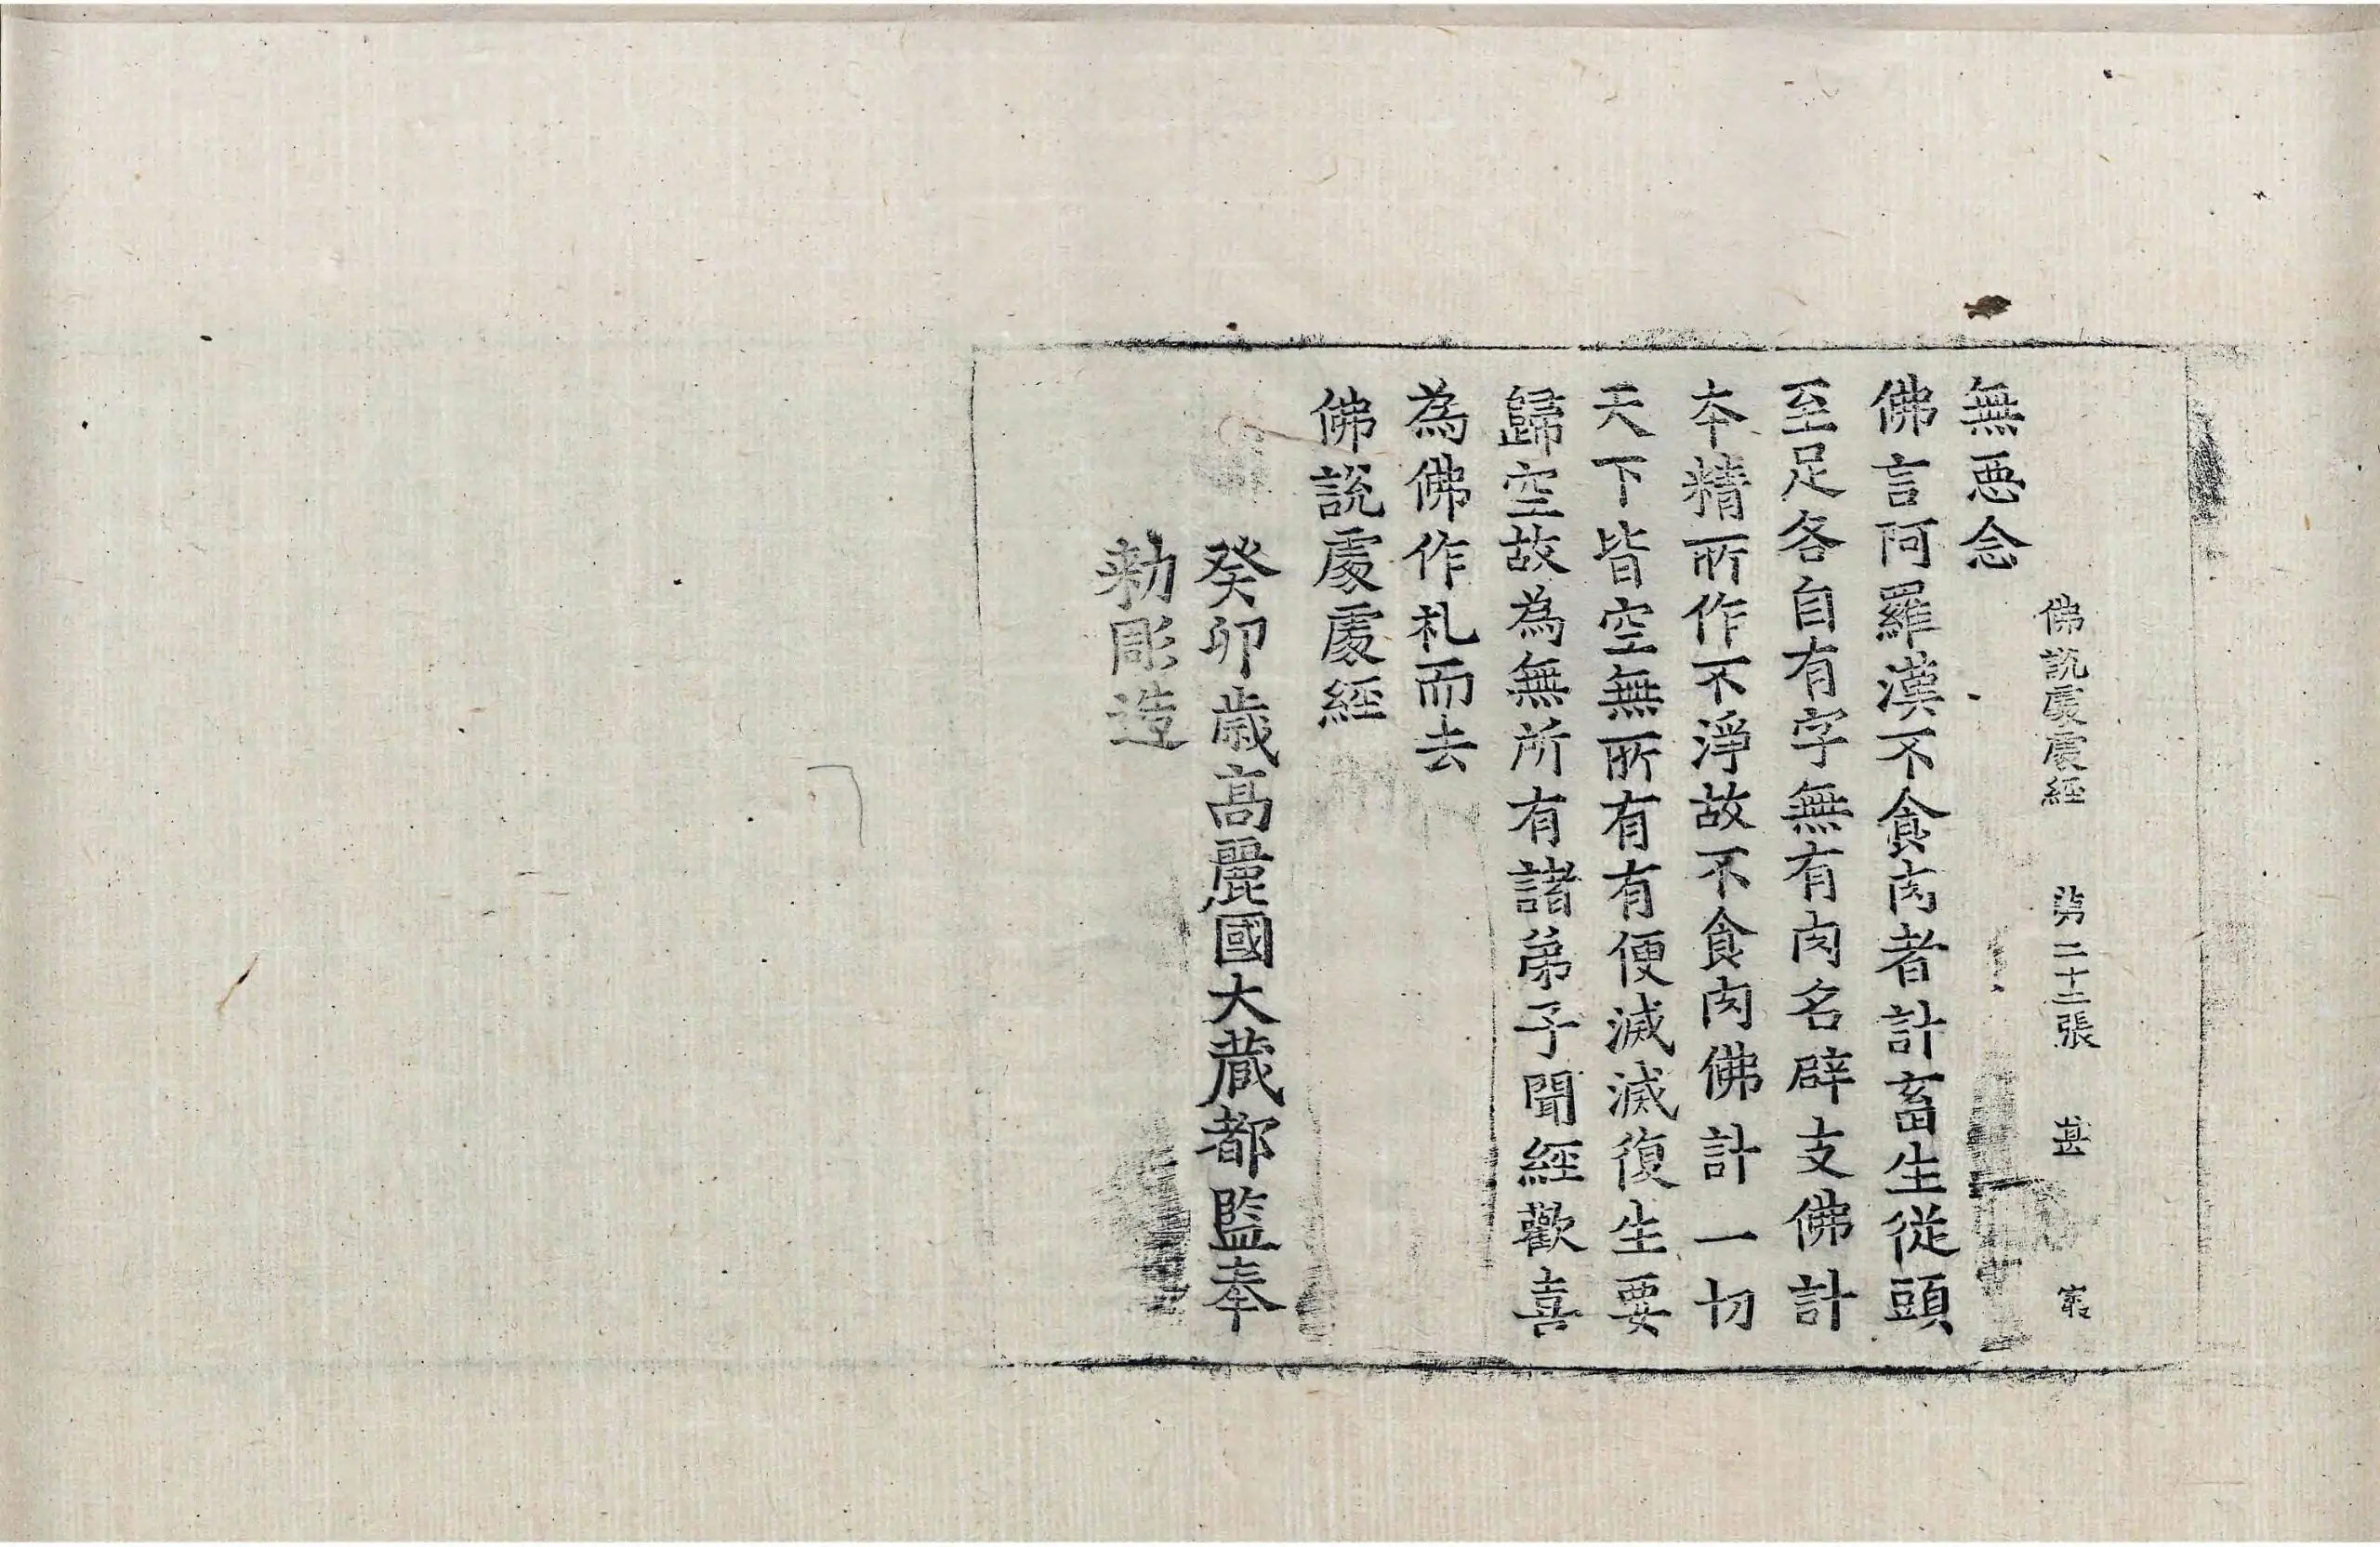 佛說處處經　第二十二張　甚
無惡念
佛言阿羅漢不食肉者計畜生從頭
至足各自有字無有肉名辟支佛計
本精所作不淨故不食肉佛計一切
天下皆空無所有有便滅滅復生要
歸空故為無所有諸弟子聞經歡喜
為佛作礼而去
佛說處處經
癸卯歲高麗國大藏都監奉
勅彫造